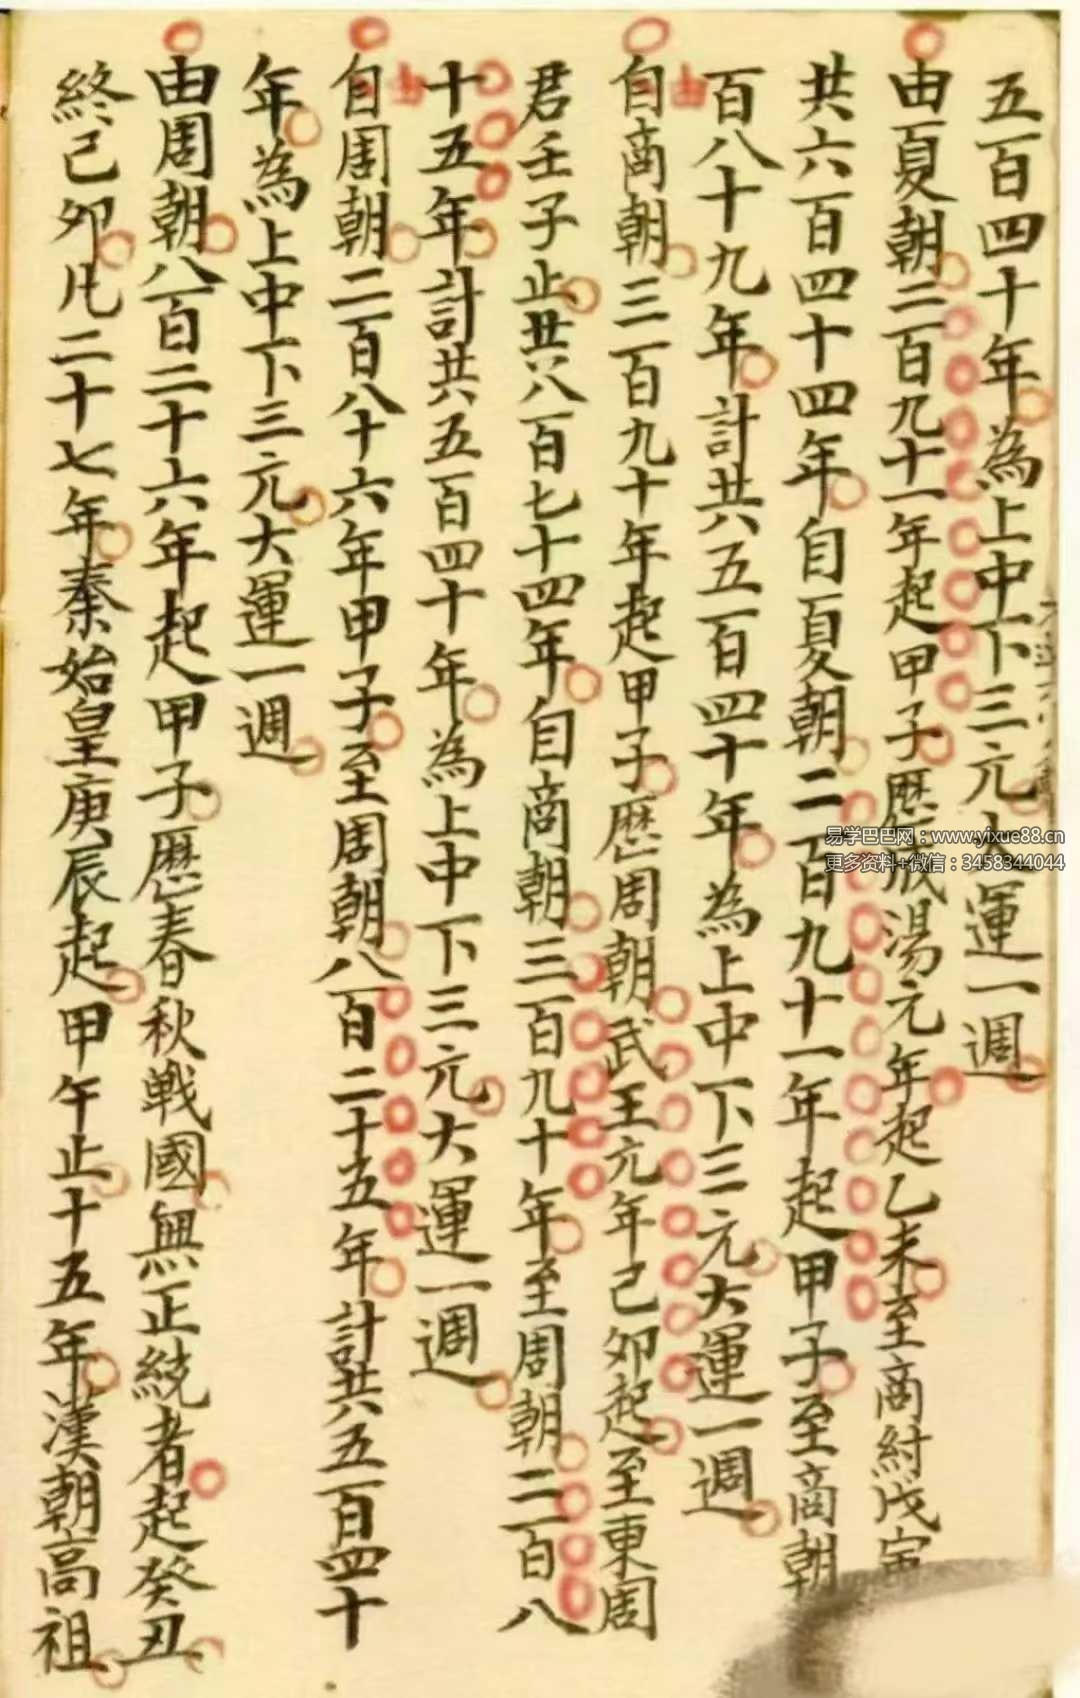 五百四十年為上中下三元大運一週
由夏朝二百九十一年起甲子歷成湯元年起乙未至商紂戊寅
共六百四十四年自夏朝二百九十一年起甲子至商朝
百八十九年計共五百四十年為上中下三元大運一週
由
自商朝三百九十年起甲子歷周朝武王元年己卯起至東周
君壬子止共八百七十四年自商朝三百九十年至周朝二百八
十五年計共五百四十年為上中下三元大運一週
由
自周朝二百八十六年甲子至周朝八百二十五年計共五百四十
年為上中下三元大運一週
由周朝八百二十六年起甲子歷春秋戰國無正統者起癸丑
終己卯凡二十七年秦始皇庚辰起甲午止十五年漢朝高祖
易学巴巴网：www.yixue88.cn
更多资料+微信：3458344044